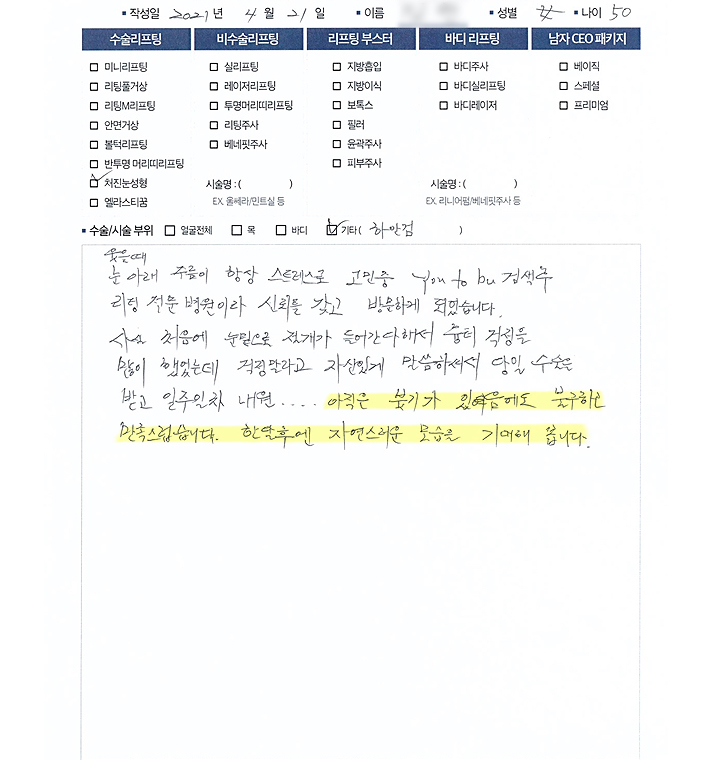 ▪ 작성일 2021 년 4 월 21 일 ▪ 이름 ▪ 성별 女 ▪ 나이 50
수술리프팅 비수술리프팅 리프팅 부스터 바디 리프팅 남자 CEO 패키지
미니리프팅 실리프팅 지방흡입 바디주사 베이직
리팅풀거상 레이저리프팅 지방이식 바디실리프팅 스페셜
리팅M리프팅 투명머리띠리프팅 보톡스 바디레이저 프리미엄
안면거상 리팅주사 필러
볼턱리프팅 베네핏주사 윤곽주사
반투명 머리띠리프팅 피부주사
처진눈성형 시술명 : ( ) 시술명 : ( )
엘라스티꿈 EX. 울쎄라/민트실 등 EX. 리니어펌/베네핏주사 등
▪ 수술/시술 부위 얼굴전체 목 바디 기타 ( 하안검 )
웃을때
눈 아래 주름이 항상 스트레스로 고민중 You to bu 검색후
리팅 전문 병원이라 신뢰를 갖고 방문하게 되었습니다.
사실 처음에 눈밑으로 절개가 들어간다해서 흉터 걱정을
많이 했었는데 걱정말라고 자신있게 말씀하셔서 당일 수술을
받고 일주일차 내원 .... 아직은 붓기가 있음에도 불구하고
만족스럽습니다. 한달후엔 자연스러운 모습을 기대해 봅니다.